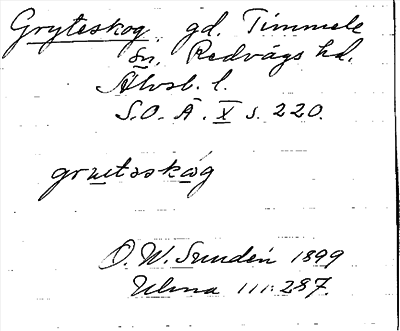 Gryteskog gd. Timmele
sn. Redvägs hd.
Älvsb. l.
S.O.Ä. X s. 220.
O. W. Sundén 1899
Ulma 111:287.